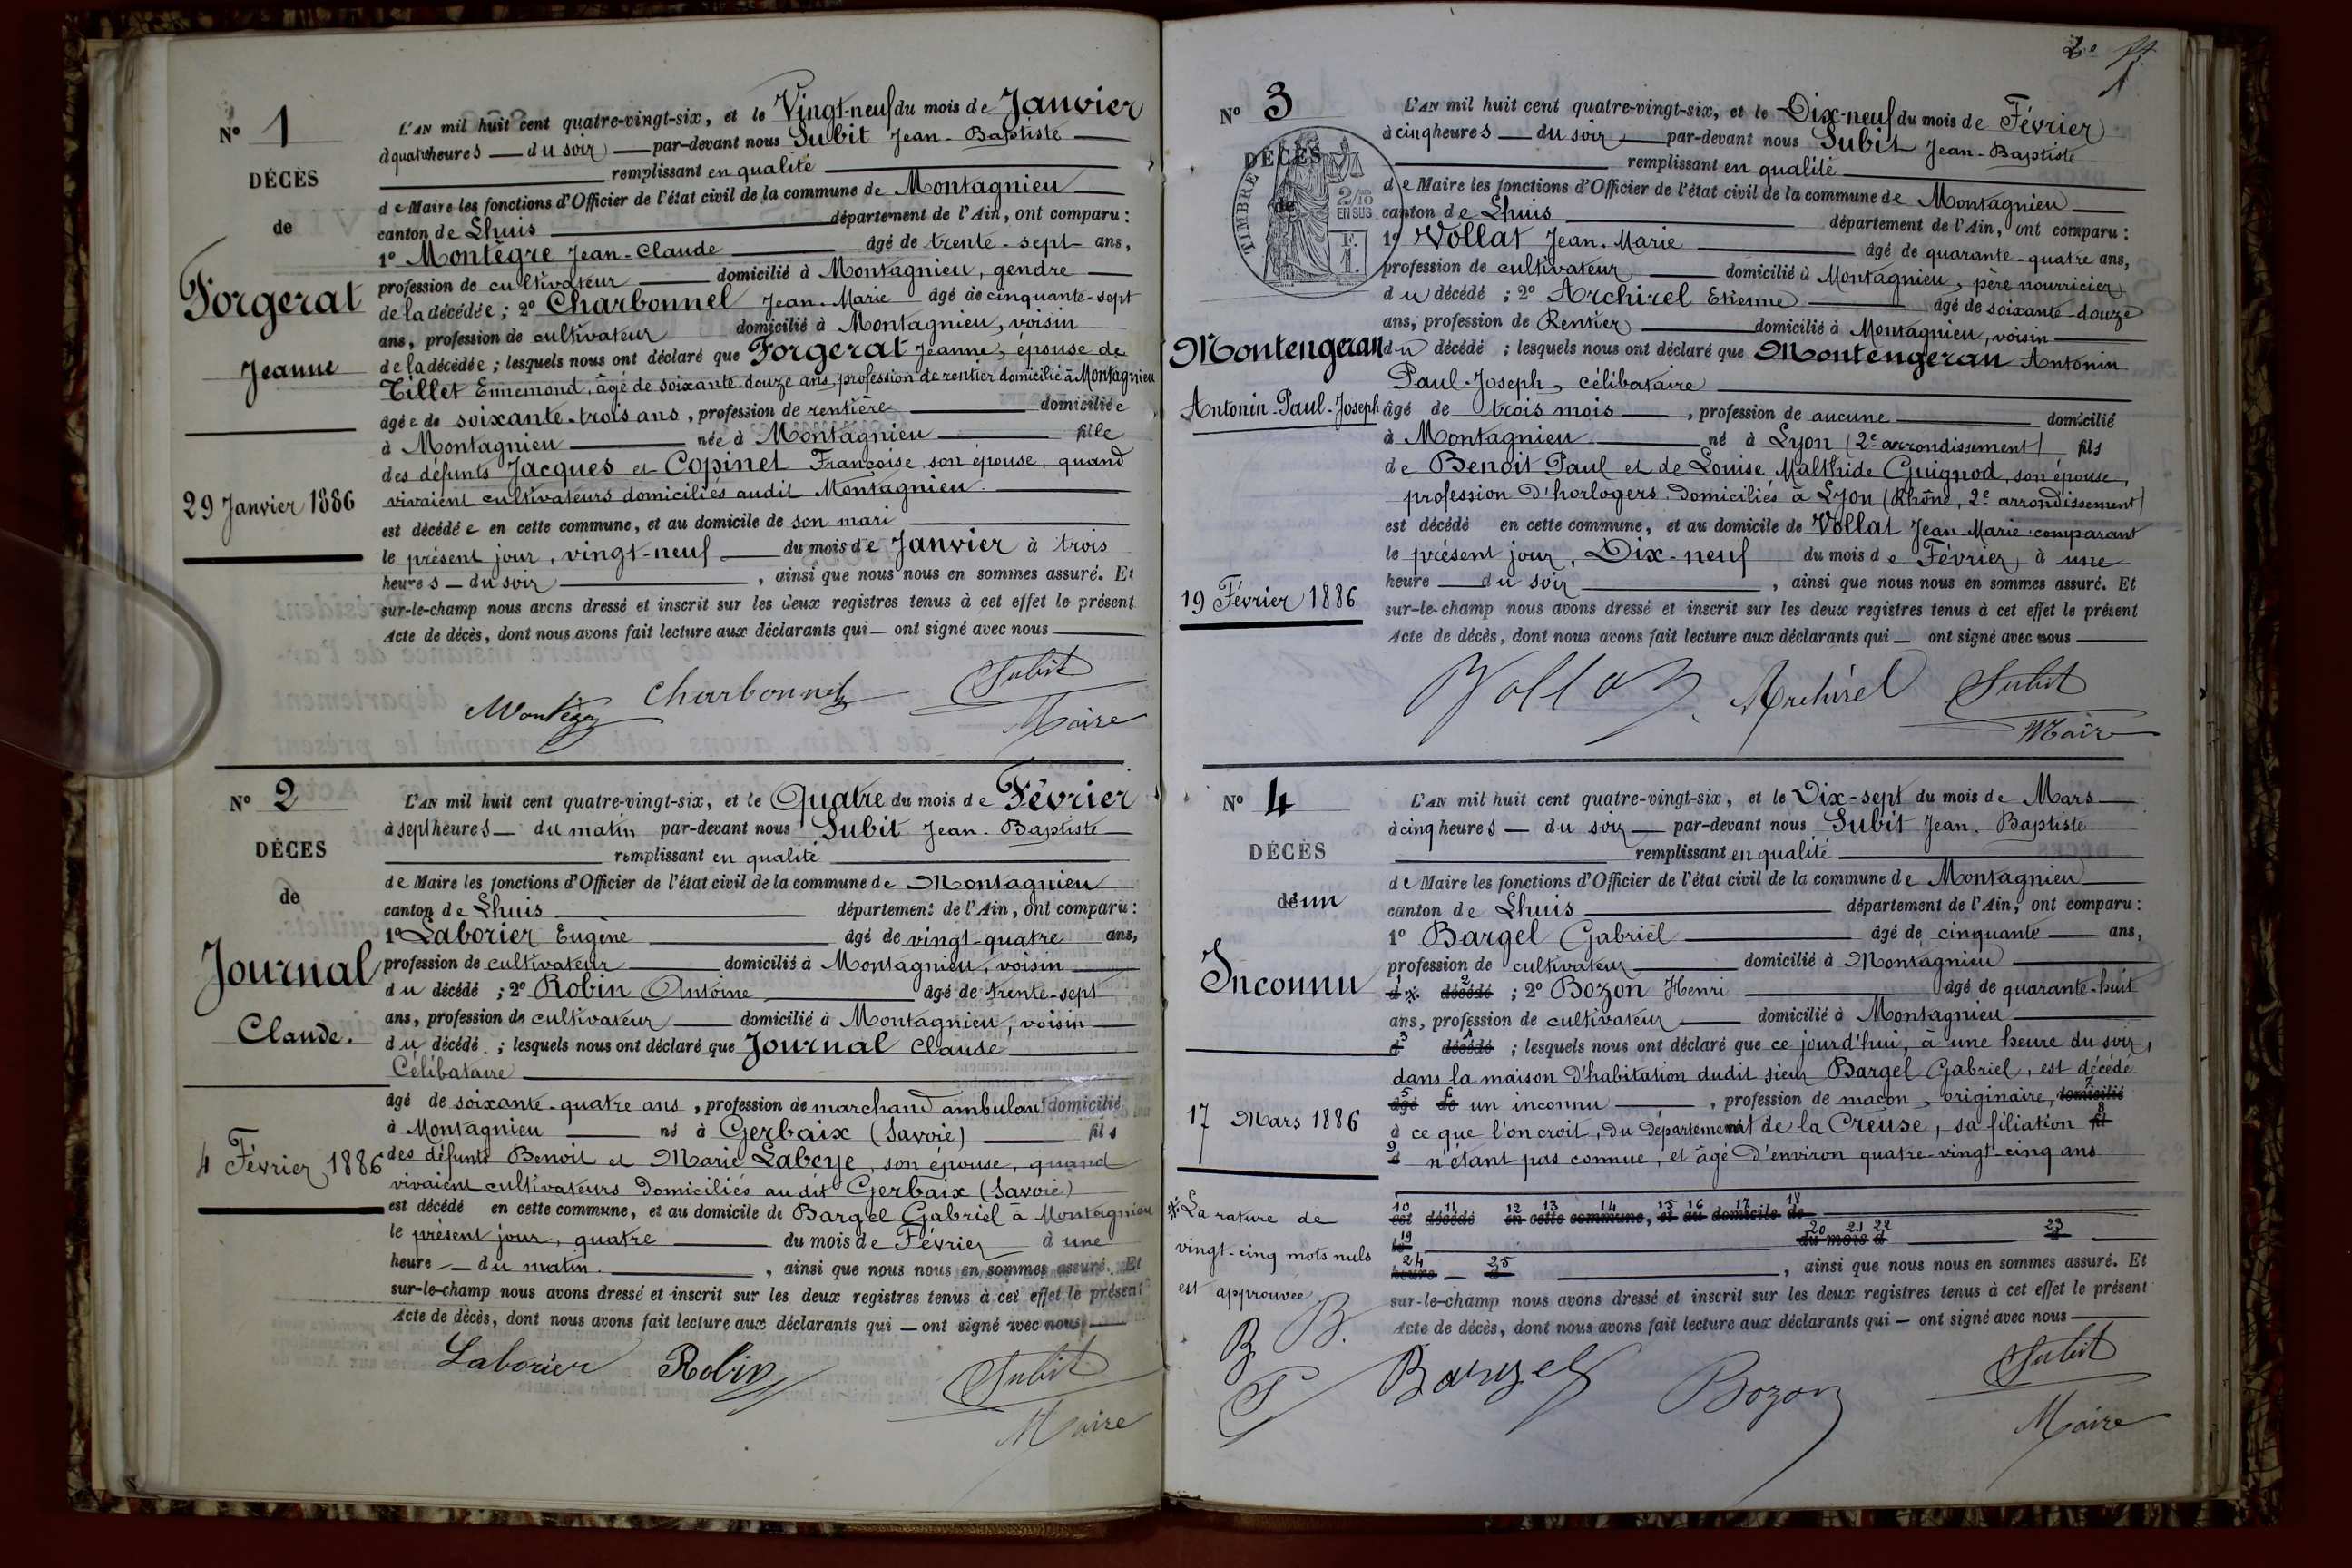 N° 1
DÉCÈS
de
Forgerat
Jeanne
29 Janvier 1886
L'AN mil huit cent quatre-vingt-six, et le Vingt-neuf du mois de Janvier
à quatre heures du soir par-devant nous Subit Jean-Baptiste
remplissant en qualité
de Maire les fonctions d'Officier de l'état civil de la commune de Montagnieu
canton de Lhuis département de l'Ain, ont comparu :
1° Montègre Jean-Claude âgé de trente-sept ans,
profession de cultivateur domicilié à Montagnieu, gendre
de la décédée ; 2° Charbonnel Jean-Marie âgé de cinquante-sept
ans, profession de cultivateur domicilié à Montagnieu, voisin
de la décédée ; lesquels nous ont déclaré que Forgerat Jeanne, épouse de
Tillet Ennemond, âgé de soixante-douze ans, profession de rentier domicilié à Montagnieu
âgée de soixante-trois ans, profession de rentière domiciliée
à Montagnieu née à Montagnieu fille
des défunts Jacques et Copinet Françoise, son épouse, quand
vivaient cultivateurs domiciliés audit Montagnieu.
est décédée en cette commune, et au domicile de son mari
le présent jour, vingt-neuf du mois de Janvier à trois
heures du soir, ainsi que nous nous en sommes assuré. Et
sur-le-champ nous avons dressé et inscrit sur les deux registres tenus à cet effet le présent
Acte de décès, dont nous avons fait lecture aux déclarants qui ont signé avec nous
Charbonnel Subit
Maire
N° 2
DÉCÈS
de
Journal
Claude.
4 Février 1886
L'AN mil huit cent quatre-vingt-six, et le Quatre du mois de Février
à sept heures du matin par-devant nous Subit Jean-Baptiste
remplissant en qualité
de Maire les fonctions d'Officier de l'état civil de la commune de Montagnieu
canton de Lhuis département de l'Ain, ont comparu :
1° Laborier Eugène âgé de vingt-quatre ans,
profession de cultivateur domicilié à Montagnieu, voisin
du décédé ; 2° Robin Antoine âgé de trente-sept
ans, profession de cultivateur domicilié à Montagnieu, voisin
du décédé ; lesquels nous ont déclaré que Journal Claude
Célibataire
âgé de soixante-quatre ans, profession de marchand ambulant domicilié
à Montagnieu né à Gerbaix (Savoie) fils
des défunts Benoit et Marie Labeye, son épouse, quand
vivaient cultivateurs domiciliés au dit Gerbaix (Savoie)
est décédé en cette commune, et au domicile de Bargel Gabriel à Montagnieu
le présent jour, quatre du mois de Février à une
heure du matin, ainsi que nous nous en sommes assuré. Et
sur-le-champ nous avons dressé et inscrit sur les deux registres tenus à cet effet le présent
Acte de décès, dont nous avons fait lecture aux déclarants qui ont signé avec nous
Laborier Robin Subit
Maire
N° 3
DÉCÈS
de
TIMBRE
2/10
EN SUS
F.
1.
Montengeran
Antonin-Paul-Joseph
19 Février 1886
L'AN mil huit cent quatre-vingt-six, et le Dix-neuf du mois de Février
à cinq heures du soir par-devant nous Subit Jean-Baptiste
remplissant en qualité
de Maire les fonctions d'Officier de l'état civil de la commune de Montagnieu
canton de Lhuis département de l'Ain, ont comparu :
1° Vollat Jean-Marie âgé de quarante-quatre ans,
profession de cultivateur domicilié à Montagnieu, père nourricier
du décédé ; 2° Archirel Etienne âgé de soixante-douze
ans, profession de Rentier domicilié à Montagnieu, voisin
du décédé ; lesquels nous ont déclaré que Montengeran Antonin
Paul-Joseph, célibataire
âgé de trois mois, profession de aucune domicilié
à Montagnieu né à Lyon (2e arrondissement) fils
de Benoit Paul et de Louise Malthide Guignod, son épouse,
profession d'horlogers domiciliés à Lyon (Rhône, 2e arrondissement)
est décédé en cette commune, et au domicile de Vollat Jean-Marie comparant
le présent jour, Dix-neuf du mois de Février à une
heure du soir, ainsi que nous nous en sommes assuré. Et
sur-le-champ nous avons dressé et inscrit sur les deux registres tenus à cet effet le présent
Acte de décès, dont nous avons fait lecture aux déclarants qui ont signé avec nous
Vollat Archirel Subit
Maire
N° 4
DÉCÈS
d'un
Inconnu
17 Mars 1886
L'AN mil huit cent quatre-vingt-six, et le Dix-sept du mois de Mars
à cinq heures du soir par-devant nous Subit Jean-Baptiste
remplissant en qualité
de Maire les fonctions d'Officier de l'état civil de la commune de Montagnieu
canton de Lhuis département de l'Ain, ont comparu :
1° Bargel Gabriel âgé de cinquante ans,
profession de cultivateur domicilié à Montagnieu
d décédé ; 2° Bozon Henri âgé de quarante-huit
ans, profession de cultivateur domicilié à Montagnieu
d décédé ; lesquels nous ont déclaré que ce jourd'hui, à une heure du soir,
dans la maison d'habitation dudit sieur Bargel Gabriel, est décédé
âgé de un inconnu, profession de maçon, originaire, domicilié
à ce que l'on croit, du Département de la Creuse, sa filiation fil
d n'étant pas connue, et âgé d'environ quatre-vingt-cinq ans
10 11 12 13 14 15 16 17 18
est décédé en cette commune, et au domicile de
19 20 21 22 23
le du mois d à
24 25
heure d, ainsi que nous nous en sommes assuré. Et
sur-le-champ nous avons dressé et inscrit sur les deux registres tenus à cet effet le présent
Acte de décès, dont nous avons fait lecture aux déclarants qui ont signé avec nous
La rature de
vingt-cinq mots nuls
est approuvée
B. B.
Bargel Bozon Subit
Maire